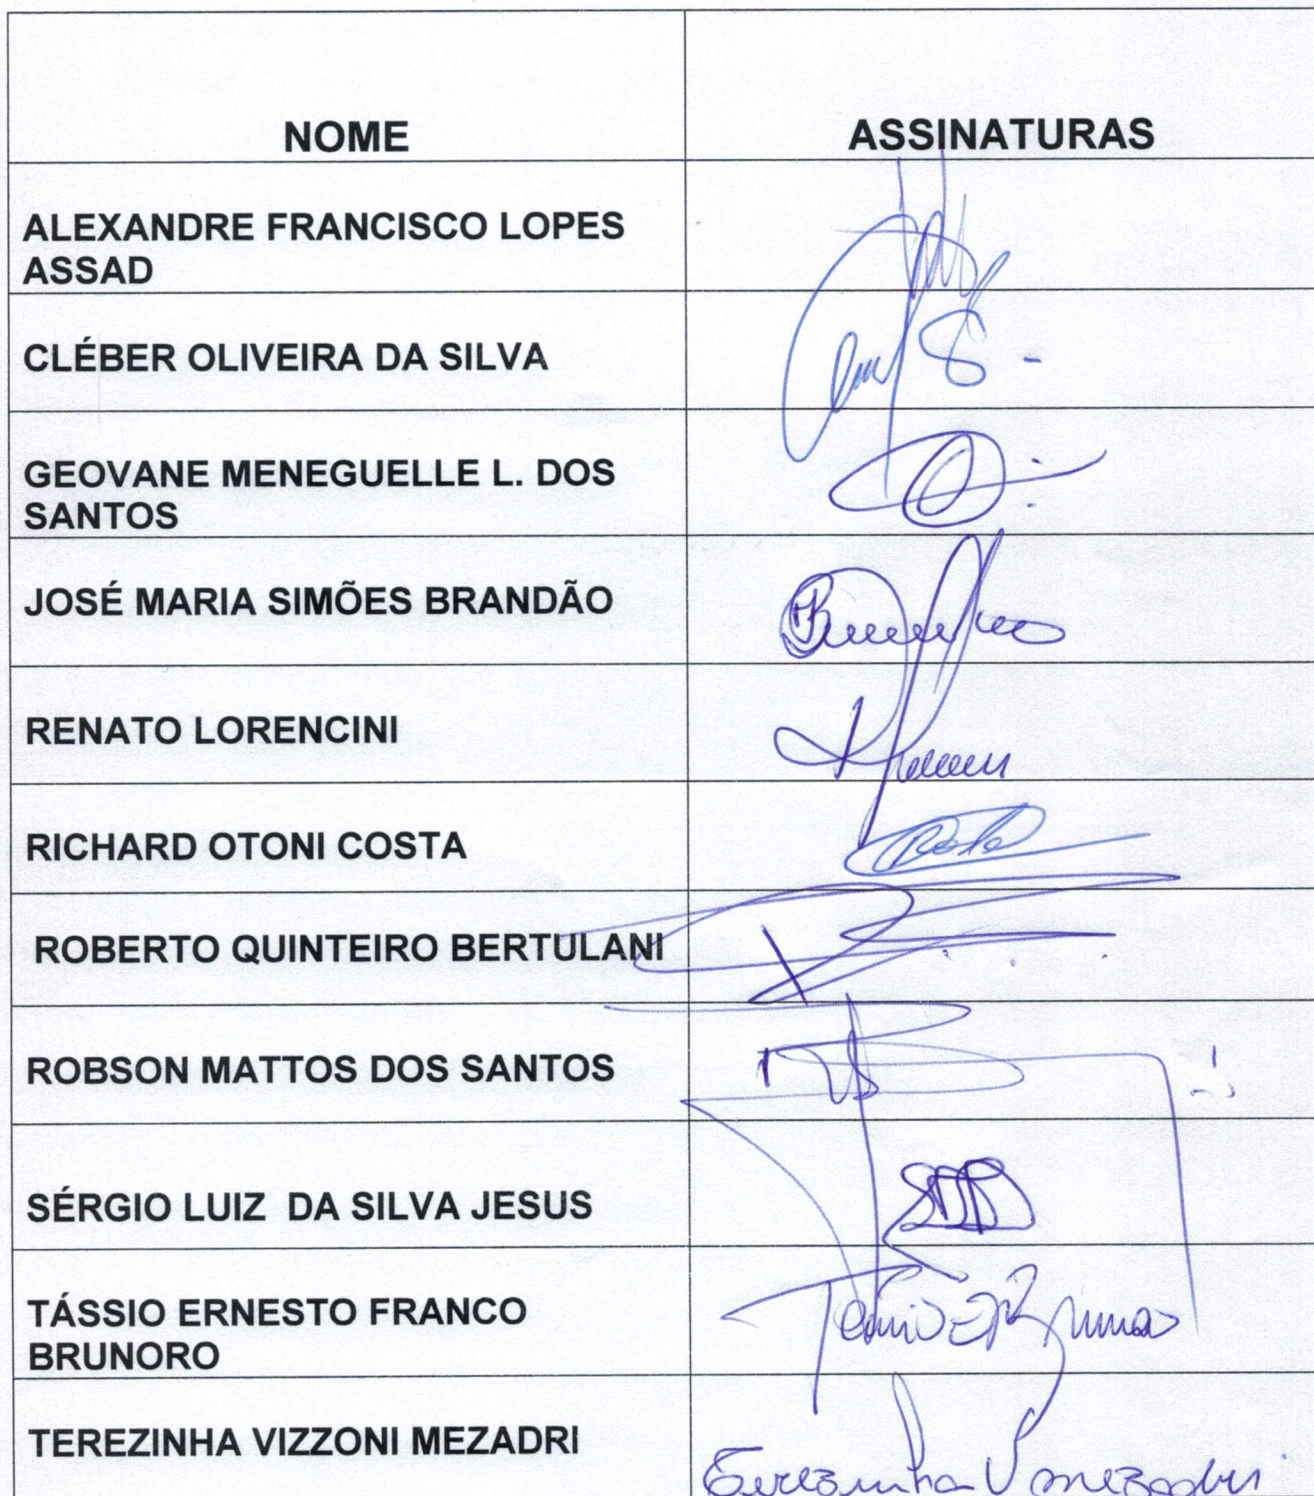 NOME ASSINATURAS
ALEXANDRE FRANCISCO LOPES
ASSAD
CLÉBER OLIVEIRA DA SILVA
GEOVANE MENEGUELLE L. DOS
SANTOS
JOSÉ MARIA SIMÕES BRANDÃO
RENATO LORENCINI
RICHARD OTONI COSTA
ROBERTO QUINTEIRO BERTULANI
ROBSON MATTOS DOS SANTOS
SÉRGIO LUIZ DA SILVA JESUS
TÁSSIO ERNESTO FRANCO
BRUNORO
TEREZINHA VIZZONI MEZADRI Terezinha V Mezadri